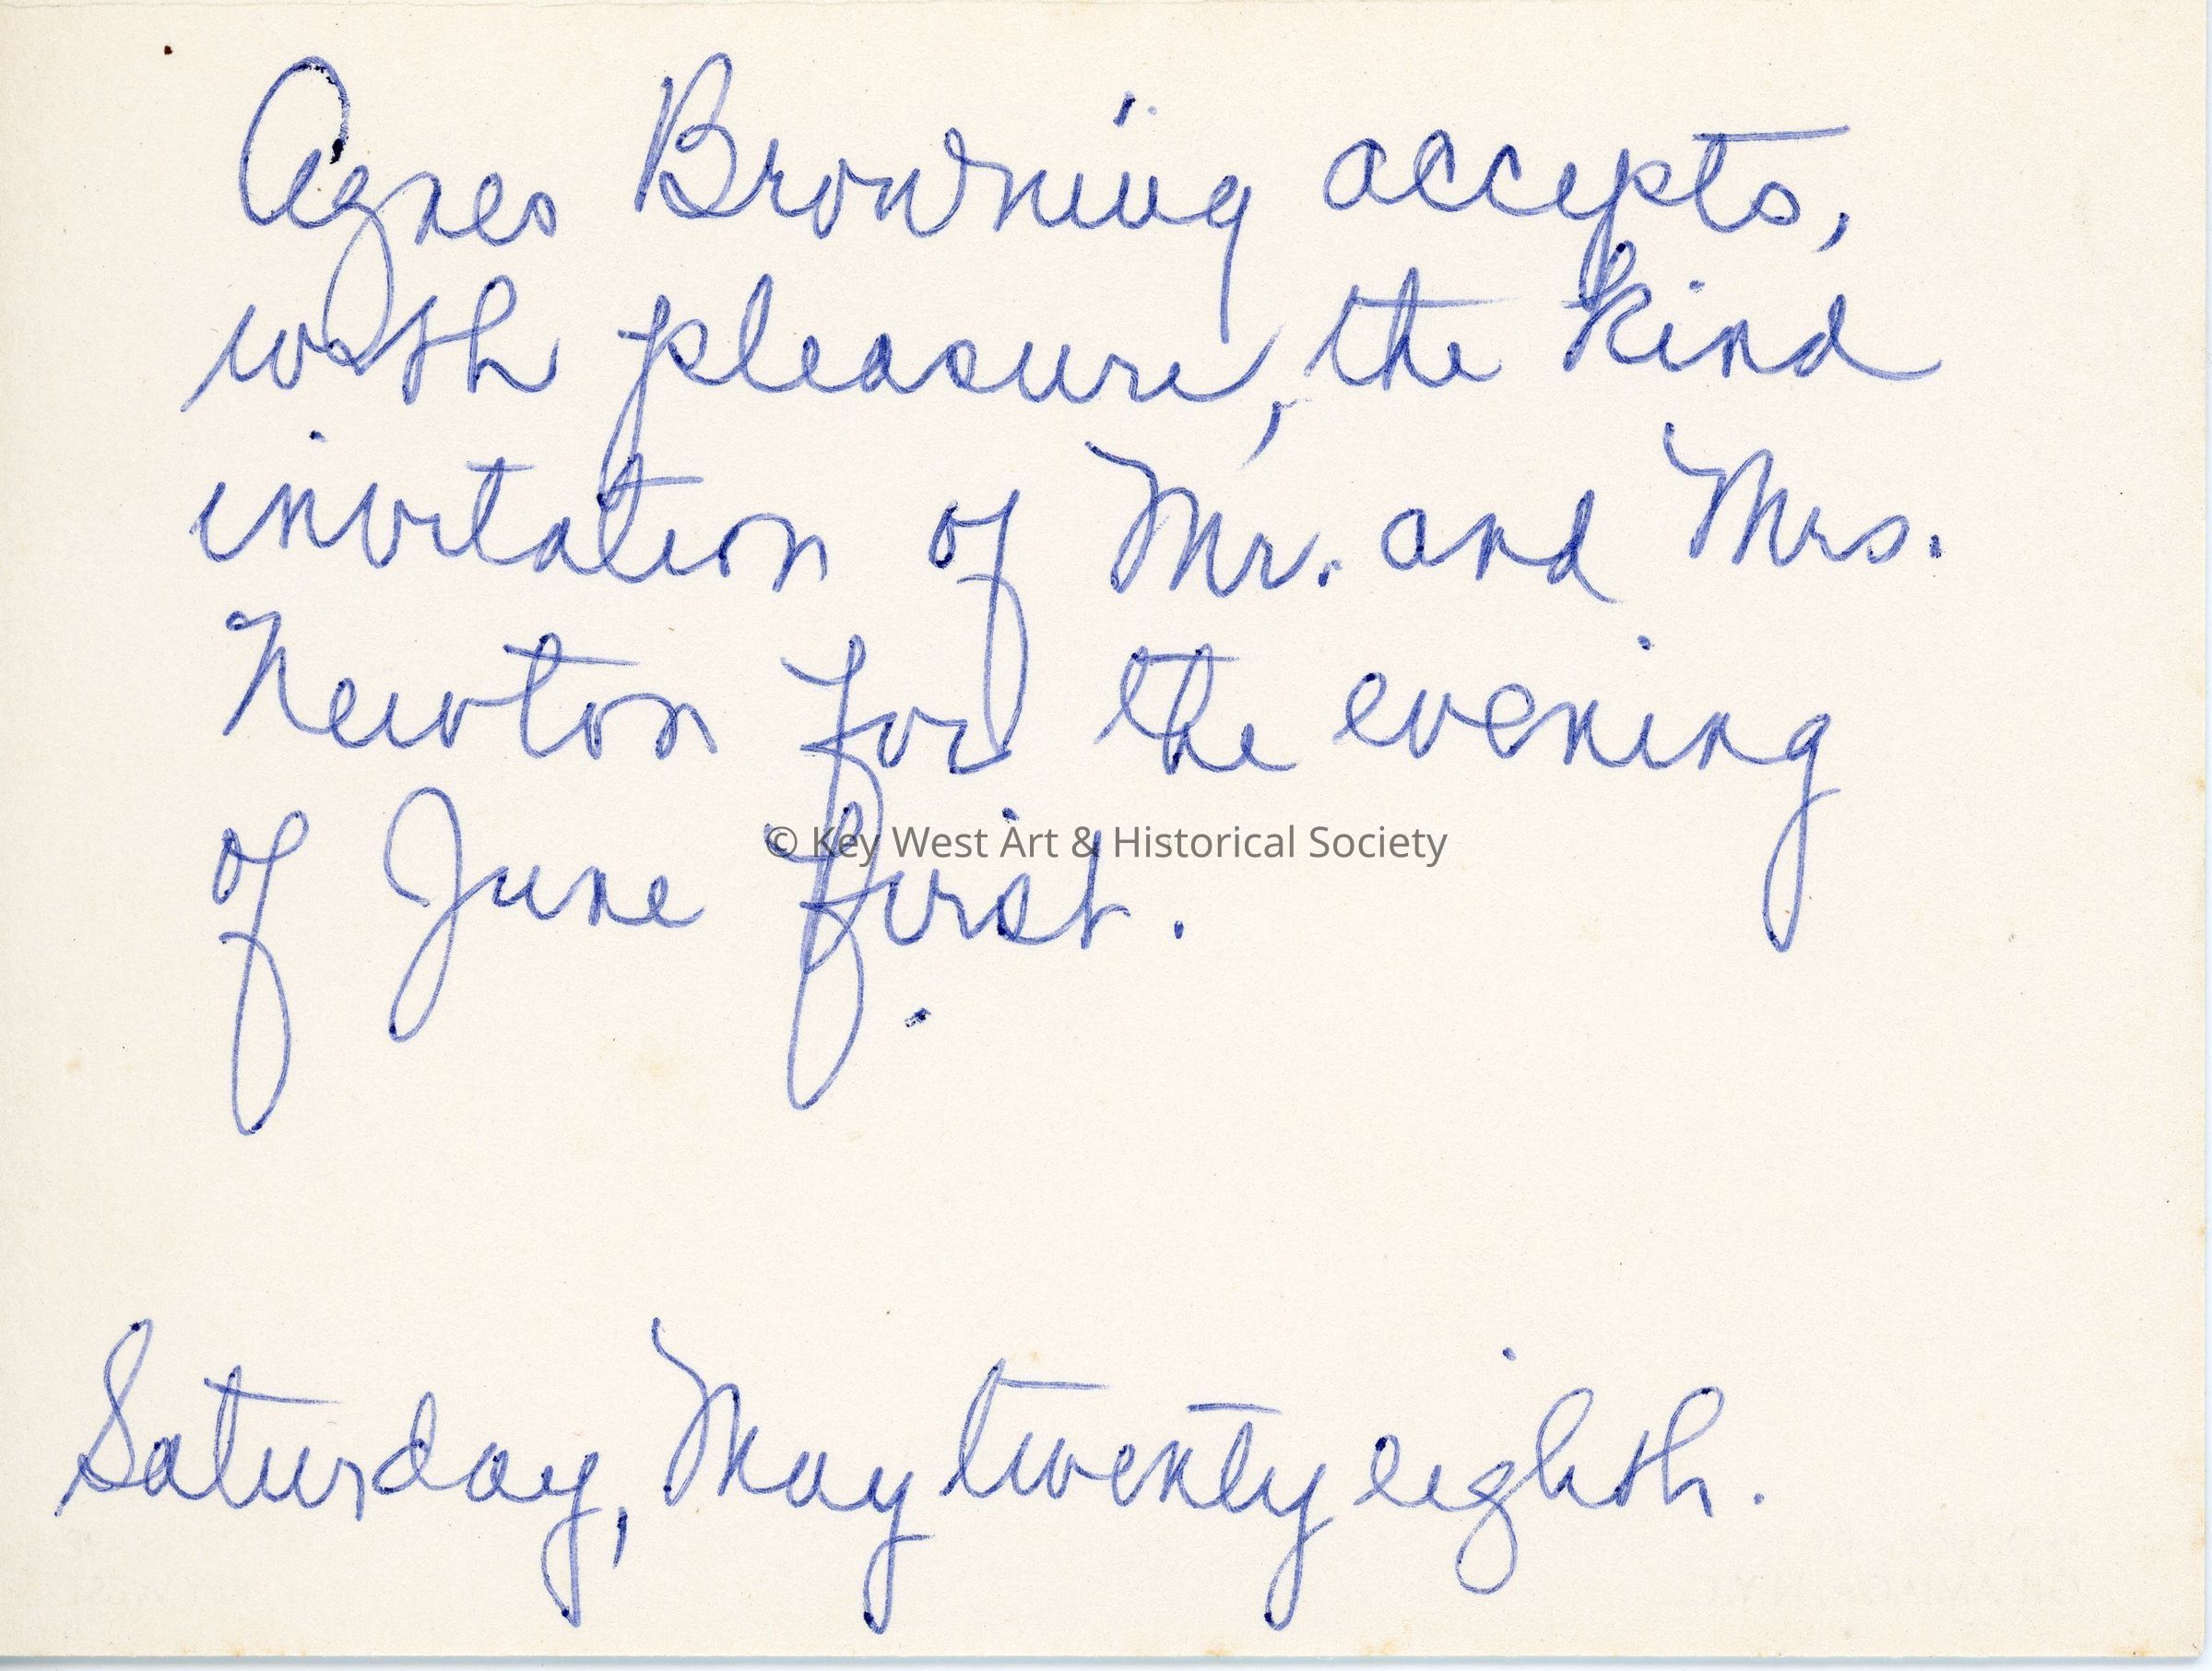 Agnes Browning accepts,
with pleasure, the kind
invitation of Mr. and Mrs.
Newton for the evening
of June first.
© Key West Art & Historical Society
Saturday, May twenty eighth.